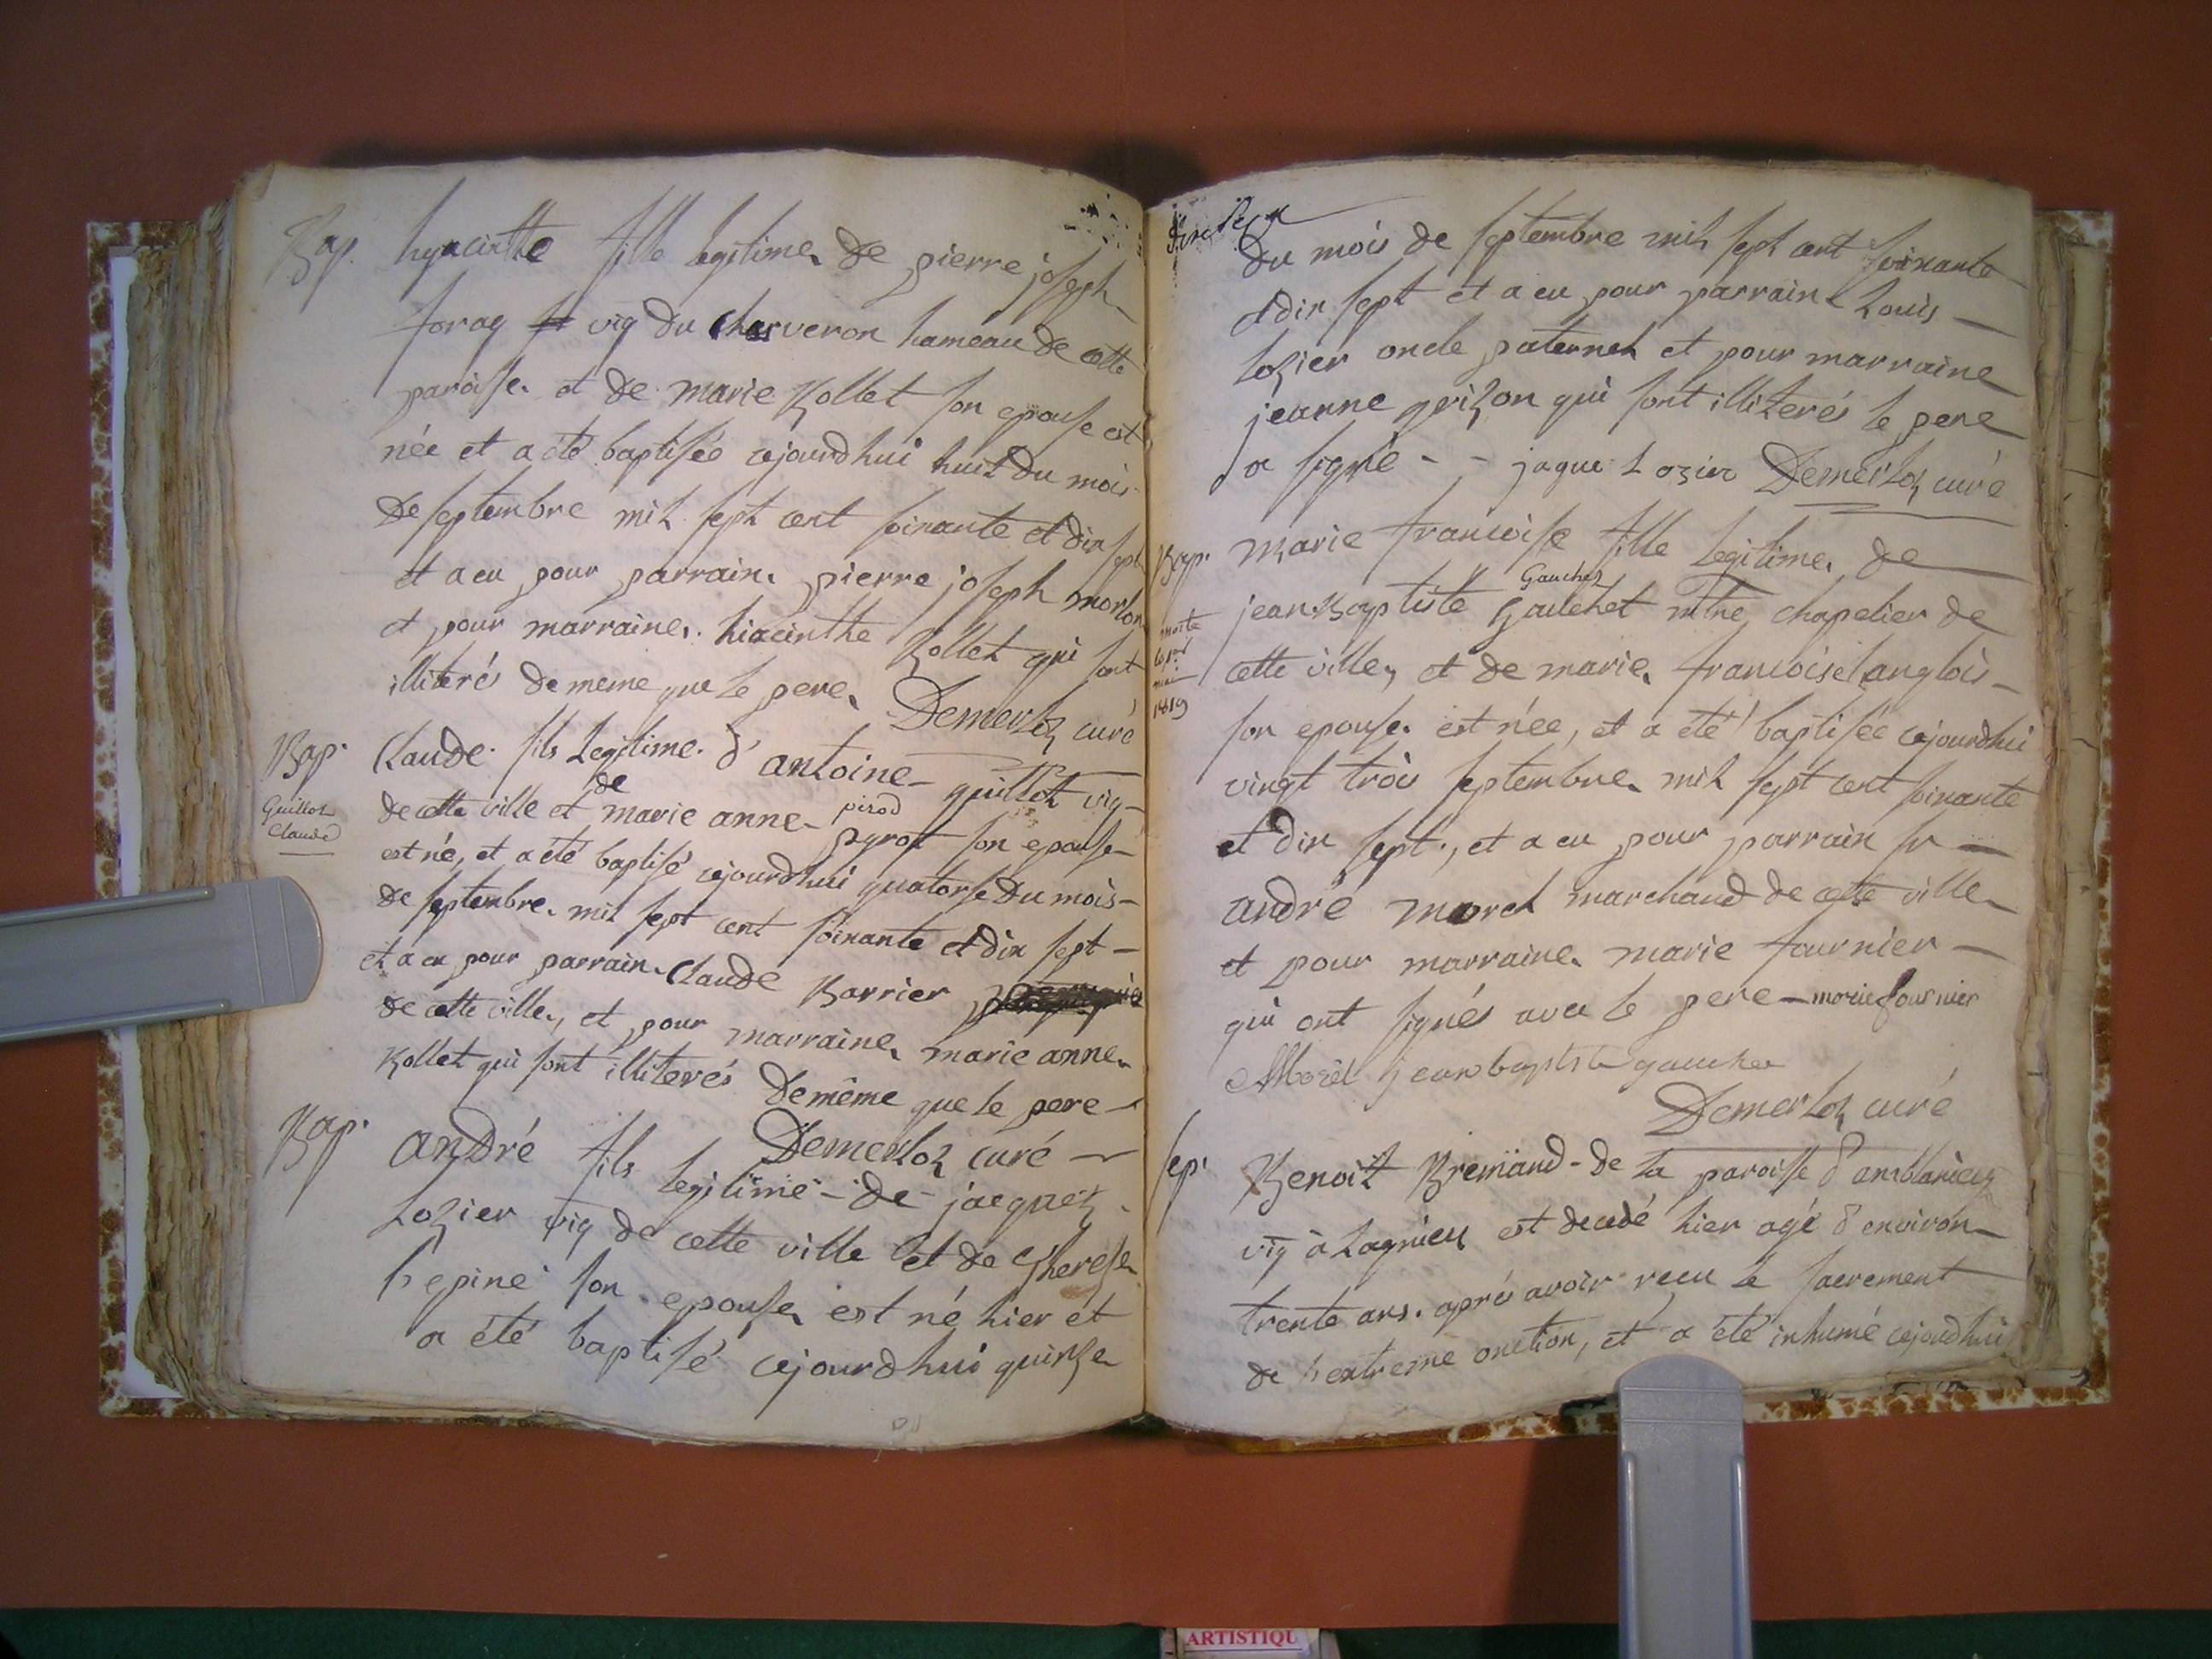 Bap. hyacinthe fille legitime de pierre joseph
foray vig du Charveron hameau de cette
paroisse et de marie Rollet son epouse est
née et a été baptisée cejourdhui huit du mois
de septembre mil sept cent soixante et dix sept
et a eu pour parrain pierre joseph morlon
et pour marraine hiacinthe Rollet qui sont
illiterés de meme que le pere Demerloz curé
Bap. Claude fils legitime d'antoine guillot vig
Guillot Claude
de cette ville et de marie anne pyrot pirod son epouse
est né, et a été baptisé cejourdhui quatorse du mois
de septembre mil sept cent soixante et dix sept
et a eu pour parrain Claude Barrier
de cette ville, et pour marraine marie anne
Rollet qui sont illiterés de même que le pere
Demerloz curé
Bap. andré fils legitime de jacques
Lozier vig de cette ville et de therese
l'epine son epouse est né hier et
a été baptisé cejourdhui quinse
du mois de septembre mil sept cent soixante
et dix sept et a eu pour parrain Louis
lozier oncle paternel et pour marraine
jeanne grizon qui sont illiterés le pere
a signé - - jaque Lozier Demerloz curé
Bap. Marie francoise fille legitime de
jean Baptiste Gauchet Gaucher mtre chapelier de
morte
mai
1819
cette ville, et de marie francoise langlois
son epouse est née, et a été baptisée cejourdhui
vingt trois septembre mil sept cent soixante
et dix sept, et a eu pour parrain sr
andré morel marchand de cette ville
et pour marraine marie fournier
qui ont signés avec le pere - marie fournier
Morel jean baptiste gaucher
Demerloz curé
sep. Benoit Bremand de la paroisse d'amblanieu
vig à Lagnieu est decedé hier agé d'environ
trente ans. aprés avoir reçu le sacrement
de l'extreme onction, et a été inhumé cejourdhui
ARTISTIQU